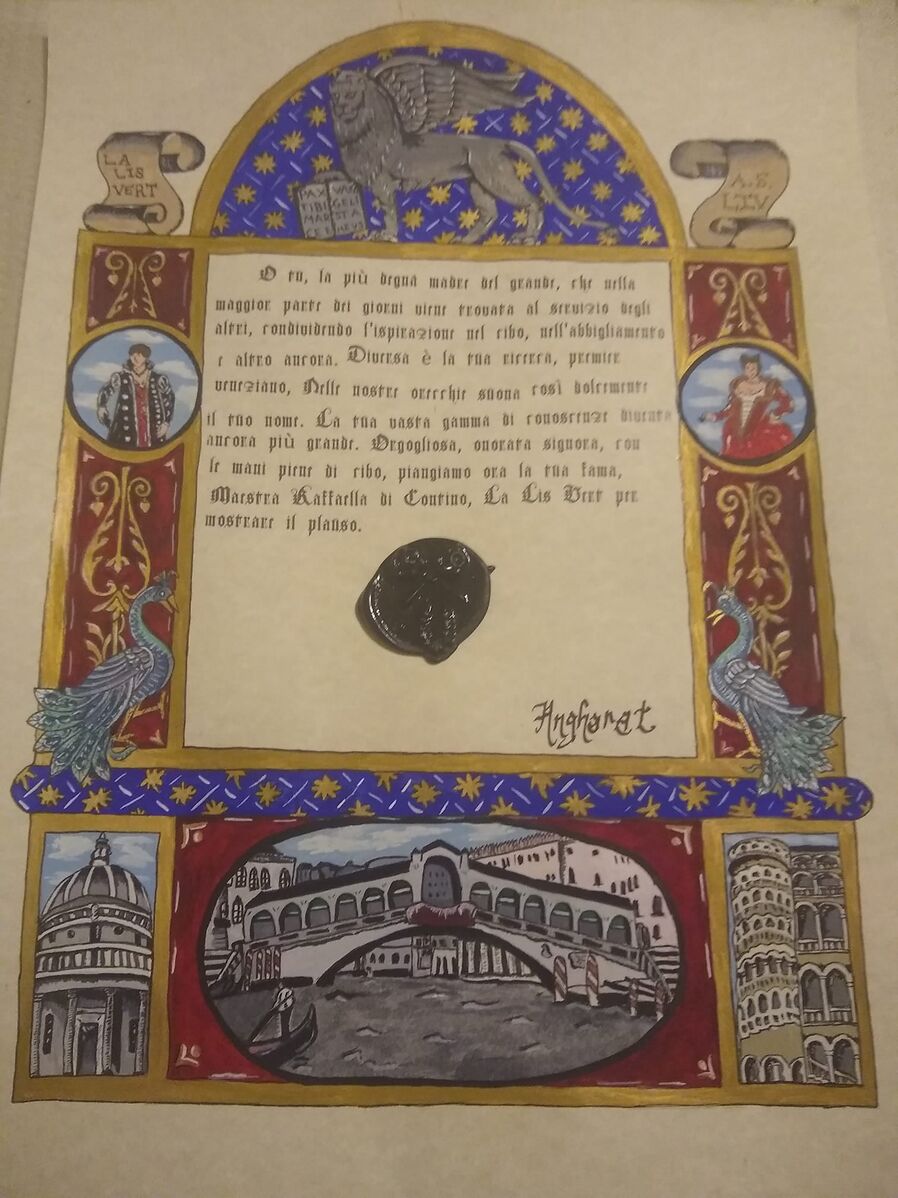 LA
LIS
VERT
PAX VAN
TIBI GELI
MAR STA
CE MEVS
A.S.
LIV
O tu, la più degna madre del grande, che nella
maggior parte dei giorni viene trovata al servizio degli
altri, condividendo l'ispirazione nel cibo, nell'abbigliamento
e altro ancora. Diversa è la tua ricerca, premier
veneziano, Nelle nostre orecchie suona così dolcemente
il tuo nome. La tua vasta gamma di conoscenze diventa
ancora più grande. Orgogliosa, onorata signora, con
le mani piene di cibo, piangiamo ora la tua fama,
Maestra Raffaella di Contino, La Lis Vert per
mostrare il plauso.
Angharat